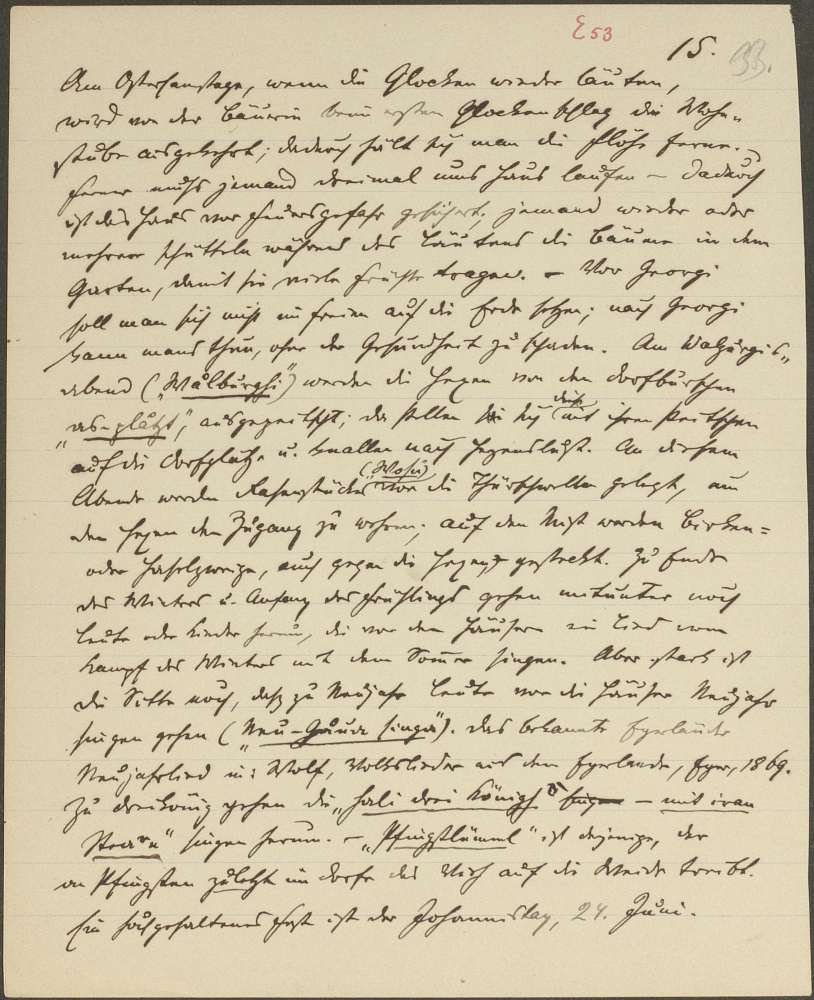 E 53
15. 33.
Am Ostersamstage, wenn die Glocken wieder läuten,
wird von der Bäuerin beim ersten Glockenschlag die Wohn-
stube ausgekehrt; dadurch hält sich man die Flöhe ferne. –
Ferner muß jemand dreimal ums Haus laufen – dadurch
ist das Haus vor Feuersgefahr gesichert; jemand wieder oder
mehrere schütteln während des Läutens die Bäume in dem
Garten, damit sie viele Früchte tragen. – Vor Georgi
soll man sich nicht im Freien auf die Erde setzen; nach Georgi
kann mans thun, ohne der Gesundheit zu schaden. Am Walpurgis-
abend ("Wålburghi") werden die Hexen von den Dorfburschen
"as-plåtzt", ausgepeitscht; da stellen sich diese mit ihren Peitschen
auf die Dorfplätze u. knallen nach Herzenslust. An diesem
Abende werden Rasenstücke (Wosn) vor die Thürschwellen gelegt, um
den Hexen den Zugang zu wehren; auf den Mist werden Birken-
oder Haselzweige, auch gegen die Hexen, gesteckt. Zu Ende
des Winters u. Anfang des Frühlings gehen mitunter noch
Leute oder Kinder herum, die vor den Häusern ein Lied vom
Kampf des Winters mit dem Sommer singen. Aber stark ist
die Sitte noch, daß zu Neujahr Leute vor die Häuser Neujahr
singen gehen ("Neu-Gåuа singa"). Das bekannte Egerländer
Neujahrlied in: Wolf, Volkslieder aus dem Egerlande, Eger, 1869.
Zu Dreikönig gehen die "hali drei Königh – mit iran
Stearn" singen herum. – "Pfingstlümml" ist derjenige, der
an Pfingsten zuletzt im Dorfe das Vieh auf die Weide treibt.
Ein hochgehaltenes Fest ist der Johannistag, 24. Juni.